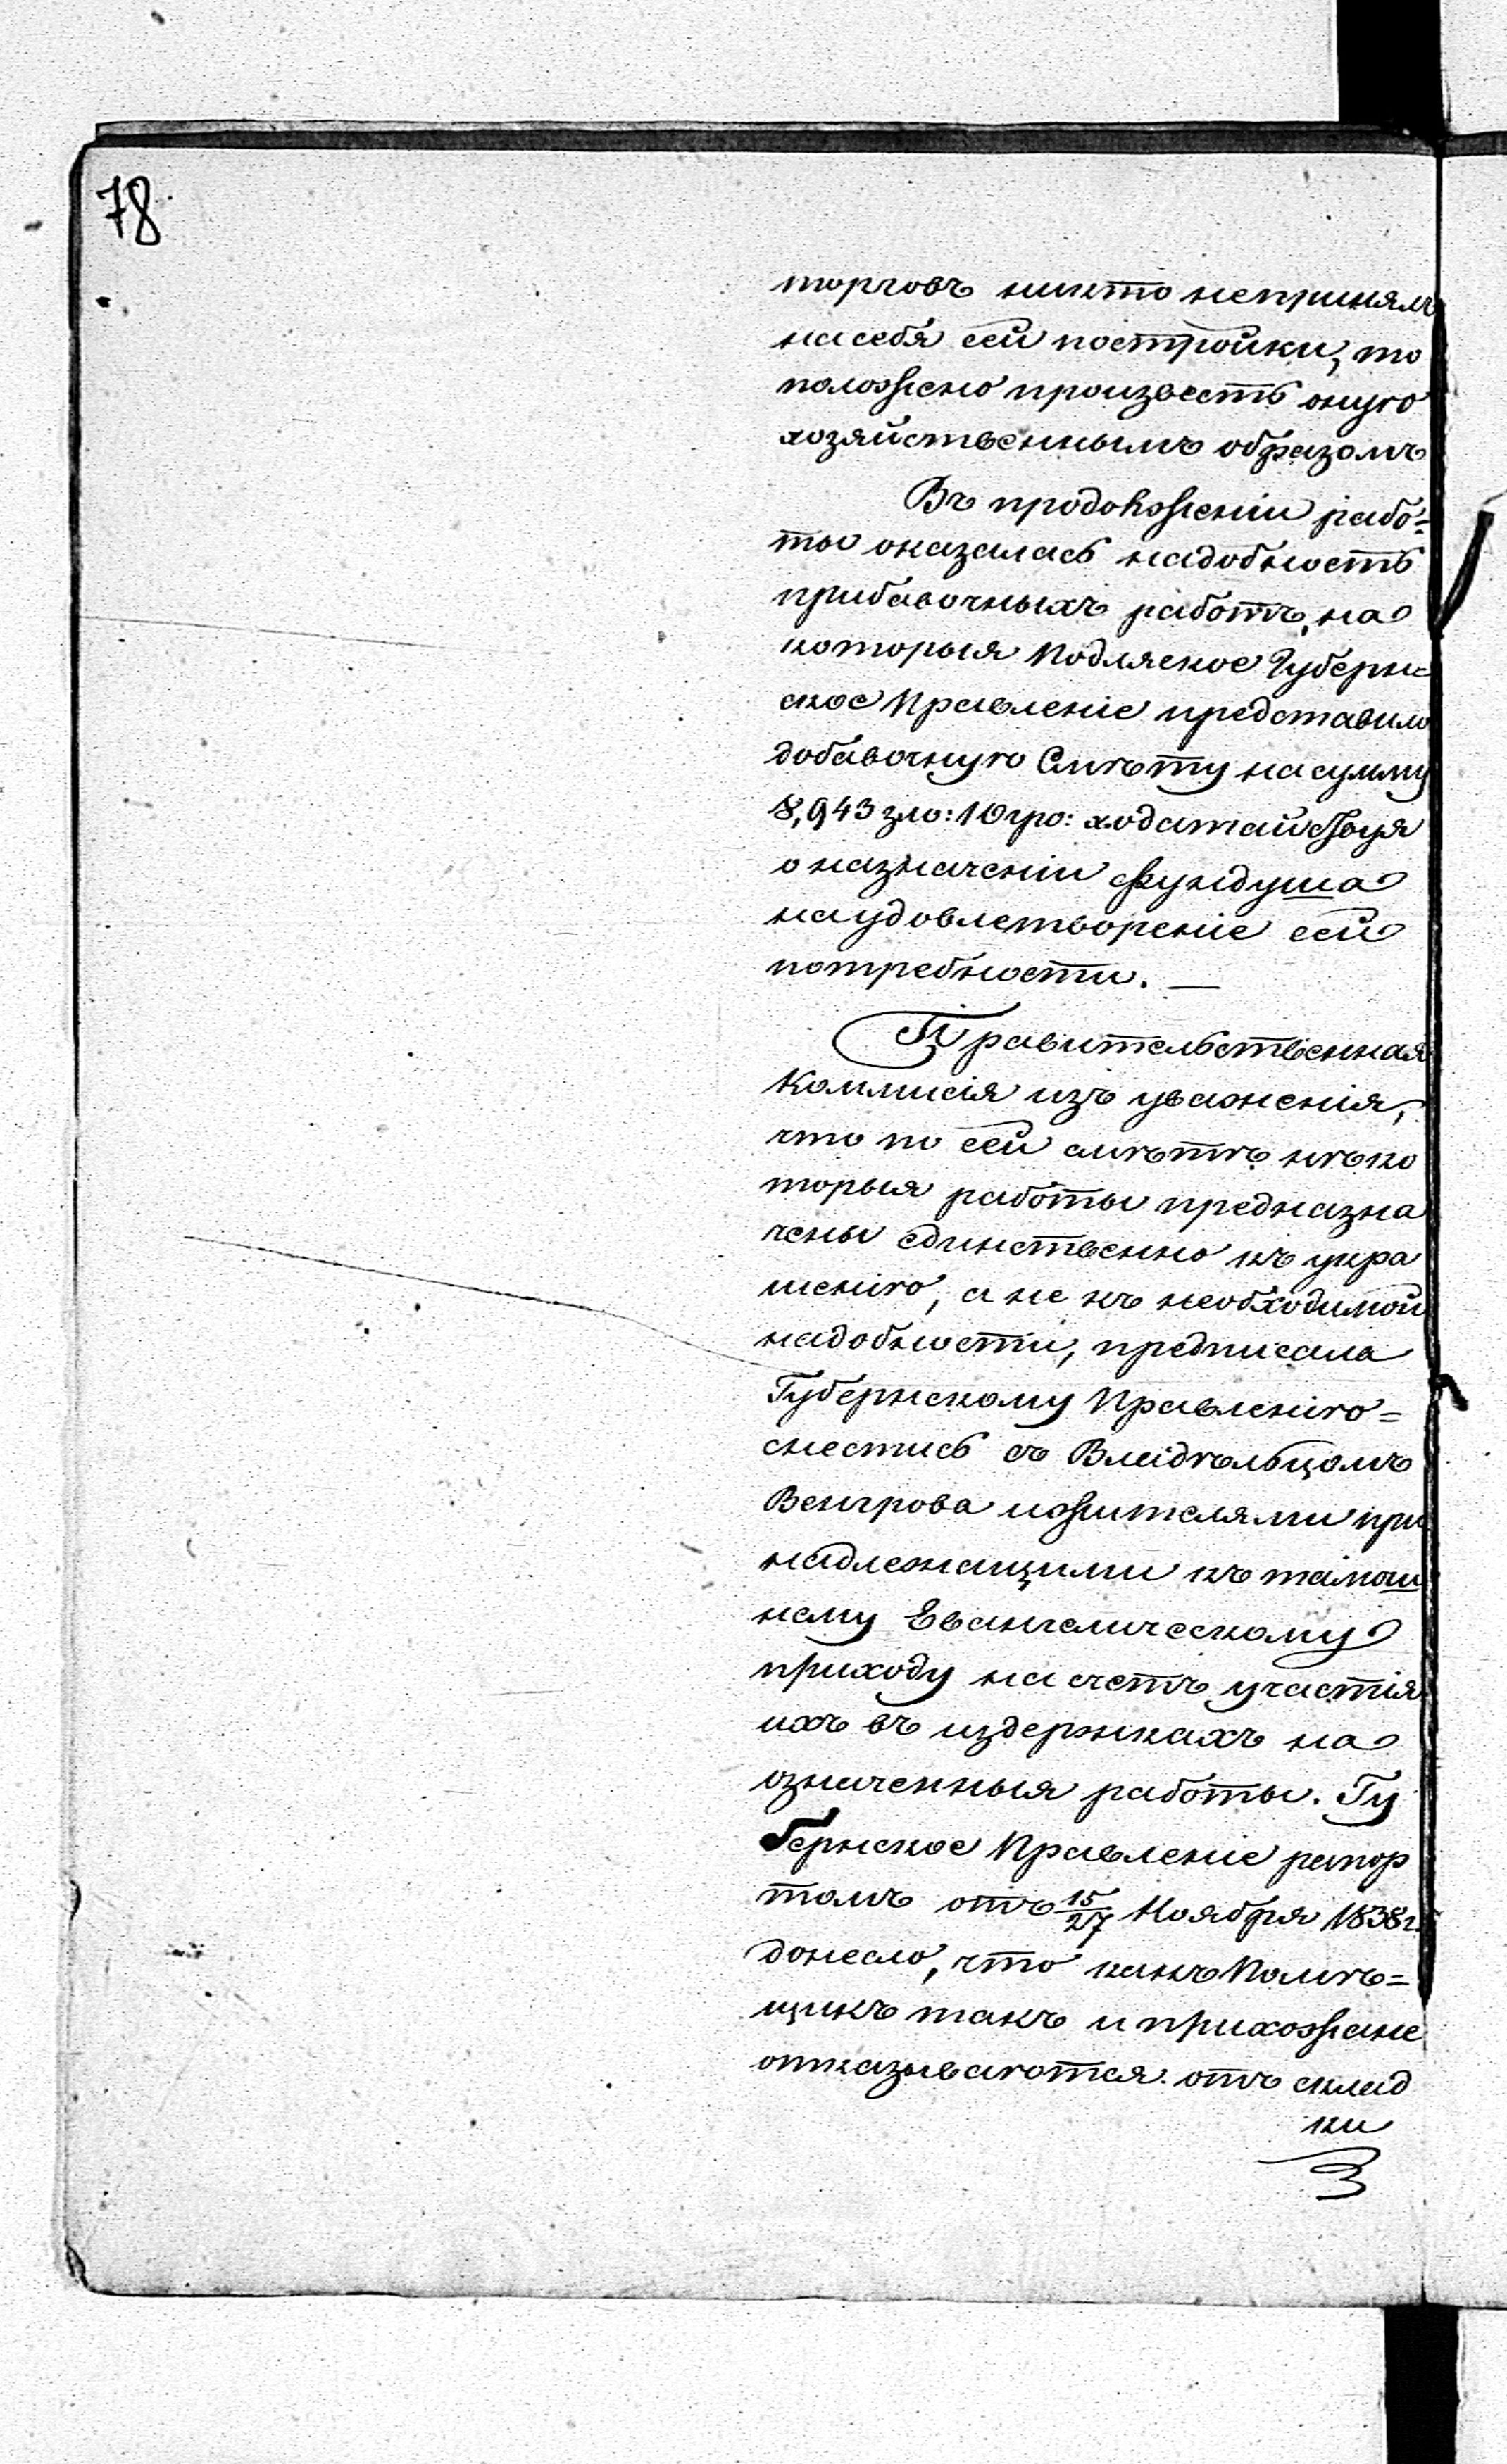 78
торговъ никто непринялъ
на себя сей постройки, то
положено произвесть оную
хозяйственнымъ образомъ
Въ продолженіи рабо=
ты оказалась надобность
прибавочныхъ работъ, на
которыя Подляское Губерн=
ское Правленіе представило
добавочную Смѣту на сумму
8,943 зло: 10 гро: ходатайствуя
о назначеніи фундуша
на удовлетвореніе сей
потребности. —
Правительственная
Коммисія изъ уваженія,
что по сей смѣтѣ нѣко
торыя работы предназна
чены единственно къ укра
шенію, а не къ необходимой
надобности, предписала
Губернскому Правленію=
снестись съ Владѣльцомъ
Венгрова и жителями при
надлежащими къ тамош
нему Евангелическому
приходу на счетъ участія
ихъ въ издержкахъ на
означенныя работы. Гу
бернское Правленіе рапор
томъ отъ 15/27 Ноября 1838 г.
донесло, что какъ Помѣ=
щикъ такъ и прихожане
отказываются отъ склад
ки